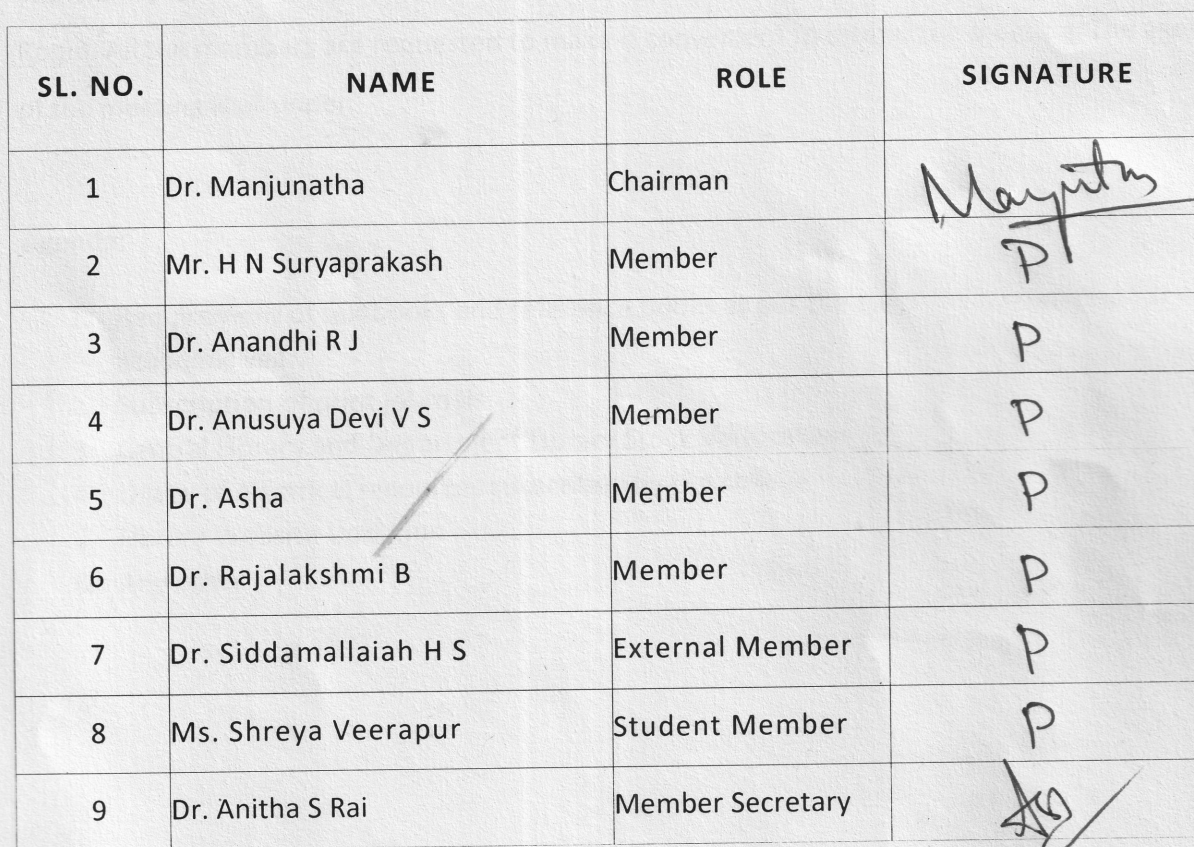 SL. NO. NAME ROLE SIGNATURE
1 Dr. Manjunatha Chairman
2 Mr. H N Suryaprakash Member P
3 Dr. Anandhi R J Member P
4 Dr. Anusuya Devi V S Member P
5 Dr. Asha Member P
6 Dr. Rajalakshmi B Member P
7 Dr. Siddamallaiah H S External Member P
8 Ms. Shreya Veerapur Student Member P
9 Dr. Anitha S Rai Member Secretary